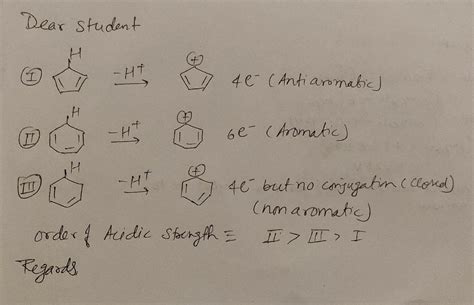 Dear Student
I H -H+ + 4e- (Antiaromatic)
II H -H+ + 6e- (Aromatic)
III H -H+ + 4e- but no conjugation (closed)
(nonaromatic)
order of Acidic strength ≡ II > III > I
Regards